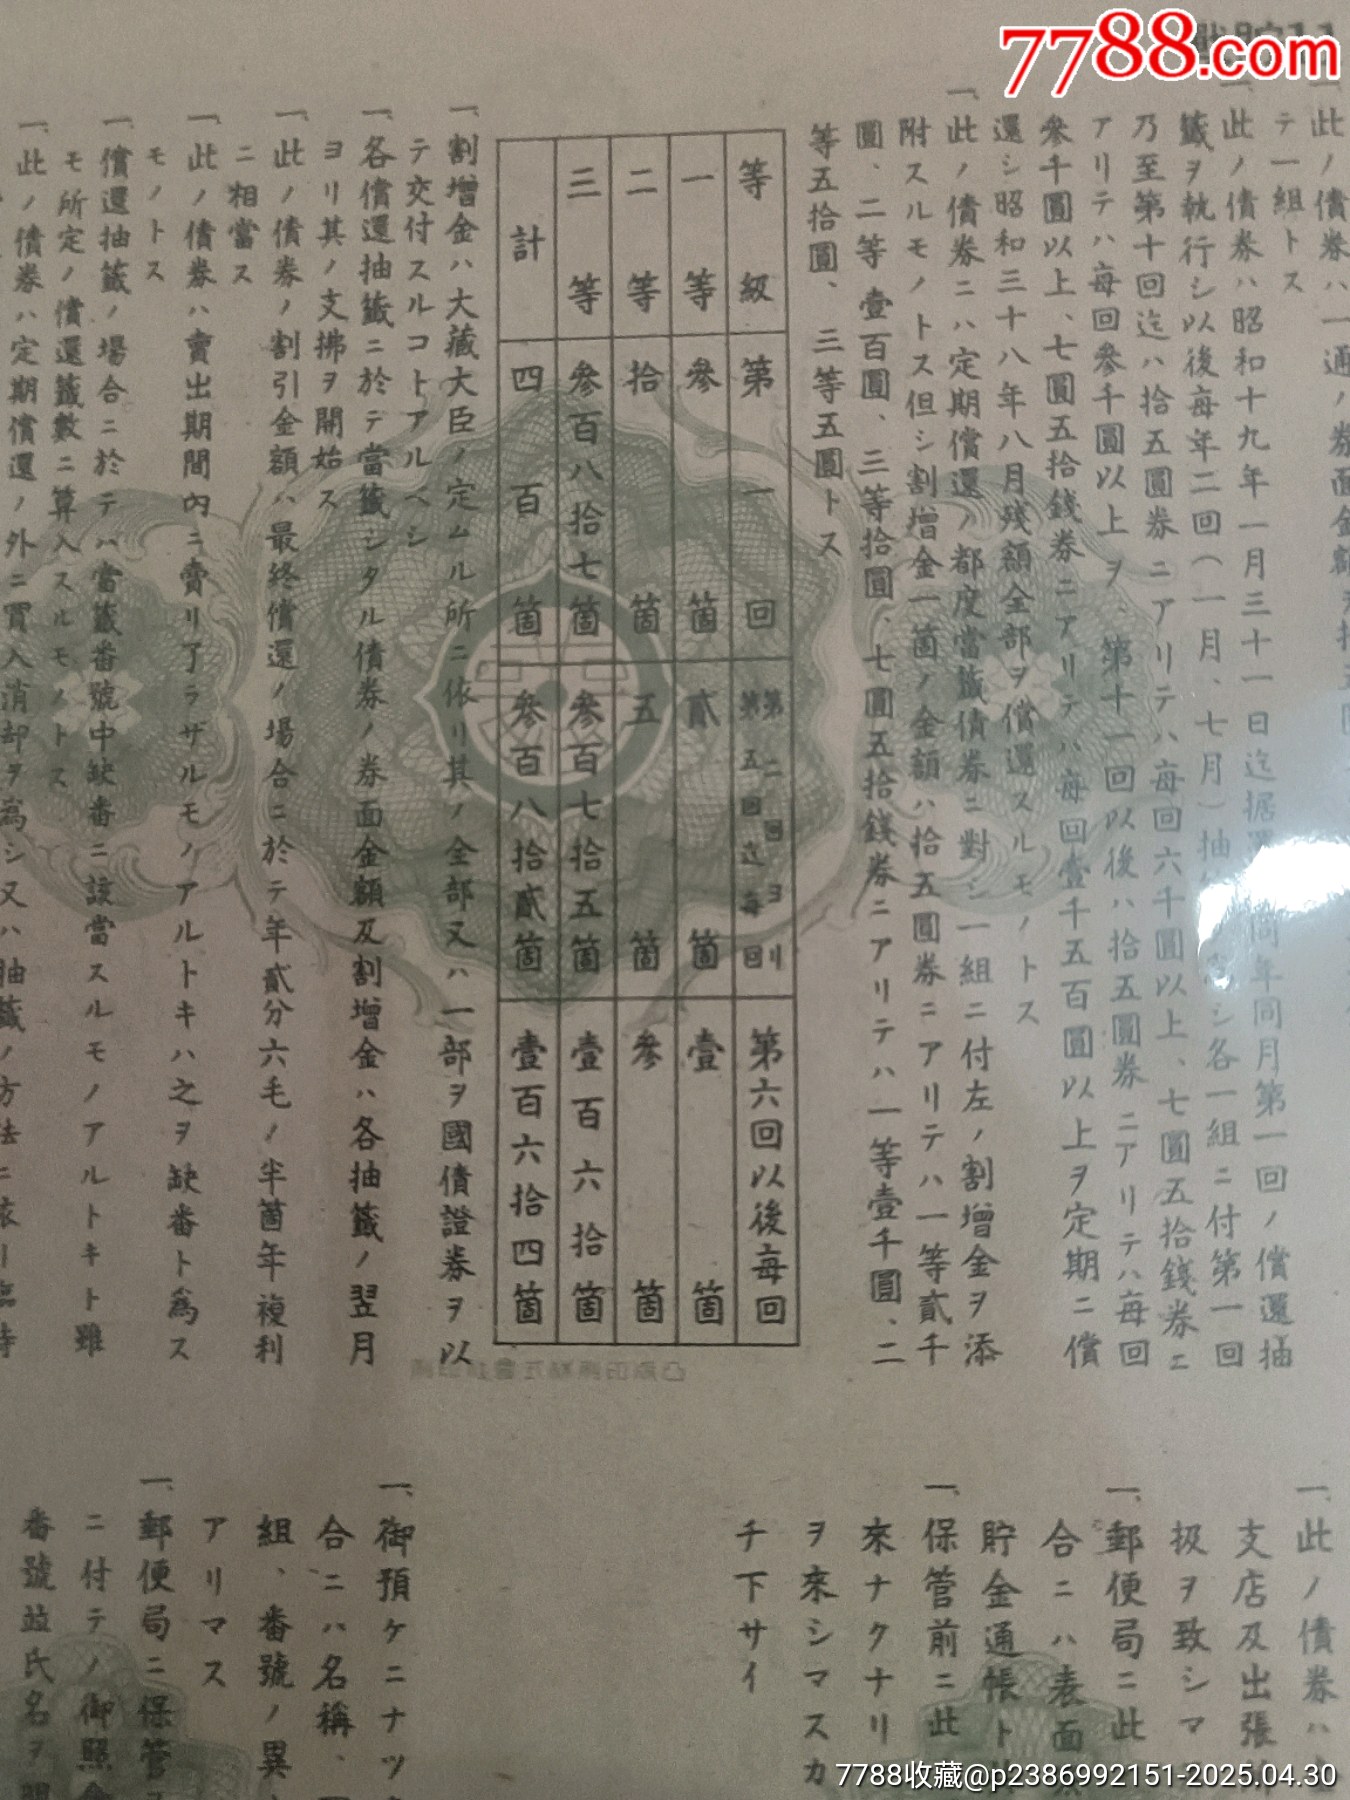 7788.com
一、此ノ債券ハ一通ノ券面金額
テ一組トス
一、此ノ債券ハ昭和十九年一月三十一日迄据置 同年同月第一回ノ償還抽
籤ヲ執行シ以後每年二回(一月、七月)抽 シ各一組ニ付第一回
乃至第十回迄ハ拾五圓券ニアリテハ每回六千圓以上、七圓五拾錢券ニ
アリテハ每回參千圓以上ヲ、第十一回以後ハ拾五圓券ニアリテハ每回
參千圓以上、七圓五拾錢券ニアリテハ每回壹千五百圓以上ヲ定期ニ償
還シ昭和三十八年八月殘額全部ヲ償還スルモノトス
一、此ノ債券ニハ定期償還ノ都度當籤債券ニ對シ一組ニ付左ノ割增金ヲ添
附スルモノトス但シ割增金一箇ノ金額ハ拾五圓券ニアリテハ一等貳千
圓、二等壹百圓、三等拾圓、七圓五拾錢券ニアリテハ一等壹千圓、二
等五拾圓、三等五圓トス
等級 第一回 第二回ヨリ第五回迄每回 第六回以後每回
一等 參箇 貳箇 壹箇
二等 拾箇 五箇 參箇
三等 參百八拾七箇 參百七拾五箇 壹百六拾箇
計 四百箇 參百八拾貳箇 壹百六拾四箇
一、割增金ハ大藏大臣ノ定ムル所ニ依リ其ノ全部又ハ一部ヲ國債證券ヲ以
テ交付スルコトアルベシ
一、各償還抽籤ニ於テ當籤シタル債券ノ券面金額及割增金ハ各抽籤ノ翌月
ヨリ其ノ支拂ヲ開始ス
一、此ノ債券ノ割引金額ハ最終償還ノ場合ニ於テ年貳分六毛ノ半箇年複利
ニ相當ス
一、此ノ債券ハ賣出期間內ニ賣リ了ラザルモノアルトキハ之ヲ缺番ト爲ス
モノトス
一、償還抽籤ノ場合ニ於テハ當籤番號中缺番ニ該當スルモノアルトキト雖
モ所定ノ償還籤數ニ算入スルモノトス
一、此ノ債券ハ定期償還ノ外ニ買入消却ヲ爲シ又ハ抽籤ノ方法ニ依リ臨時
一、此ノ債券ハ
支店及出張
扱ヲ致シマ
一、郵便局ニ此
合ニハ表面
貯金通帳ト
一、保管前ニ此
來ナクナリ
ヲ來シマスカ
チ下サイ
一、御預ケニナツ
合ニハ名稱、
組、番號ノ異
アリマス
一、郵便局ニ保管
ニ付テノ御照
番號竝氏名ヲ
7788收藏@p2386992151-2025.04.30